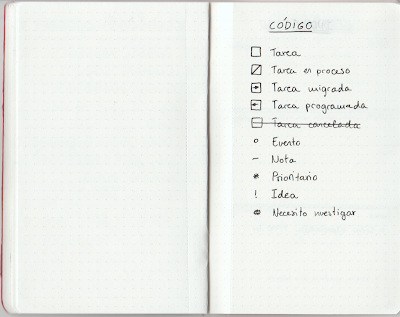 CÓDIGO
Tarea
Tarea en proceso
Tarea migrada
Tarea programada
Tarea cancelada
Evento
- Nota
* Prioritario
! Idea
Necesito investigar